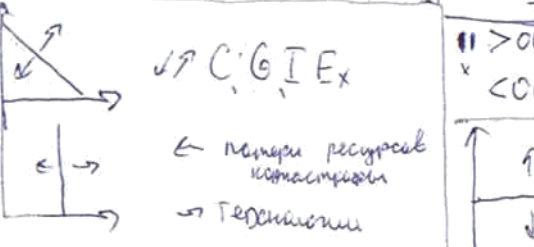 ↙↗ C, G, I, Ex
← потери ресурсов
катастрофы
→ Технологии
" > 0
x
< 0